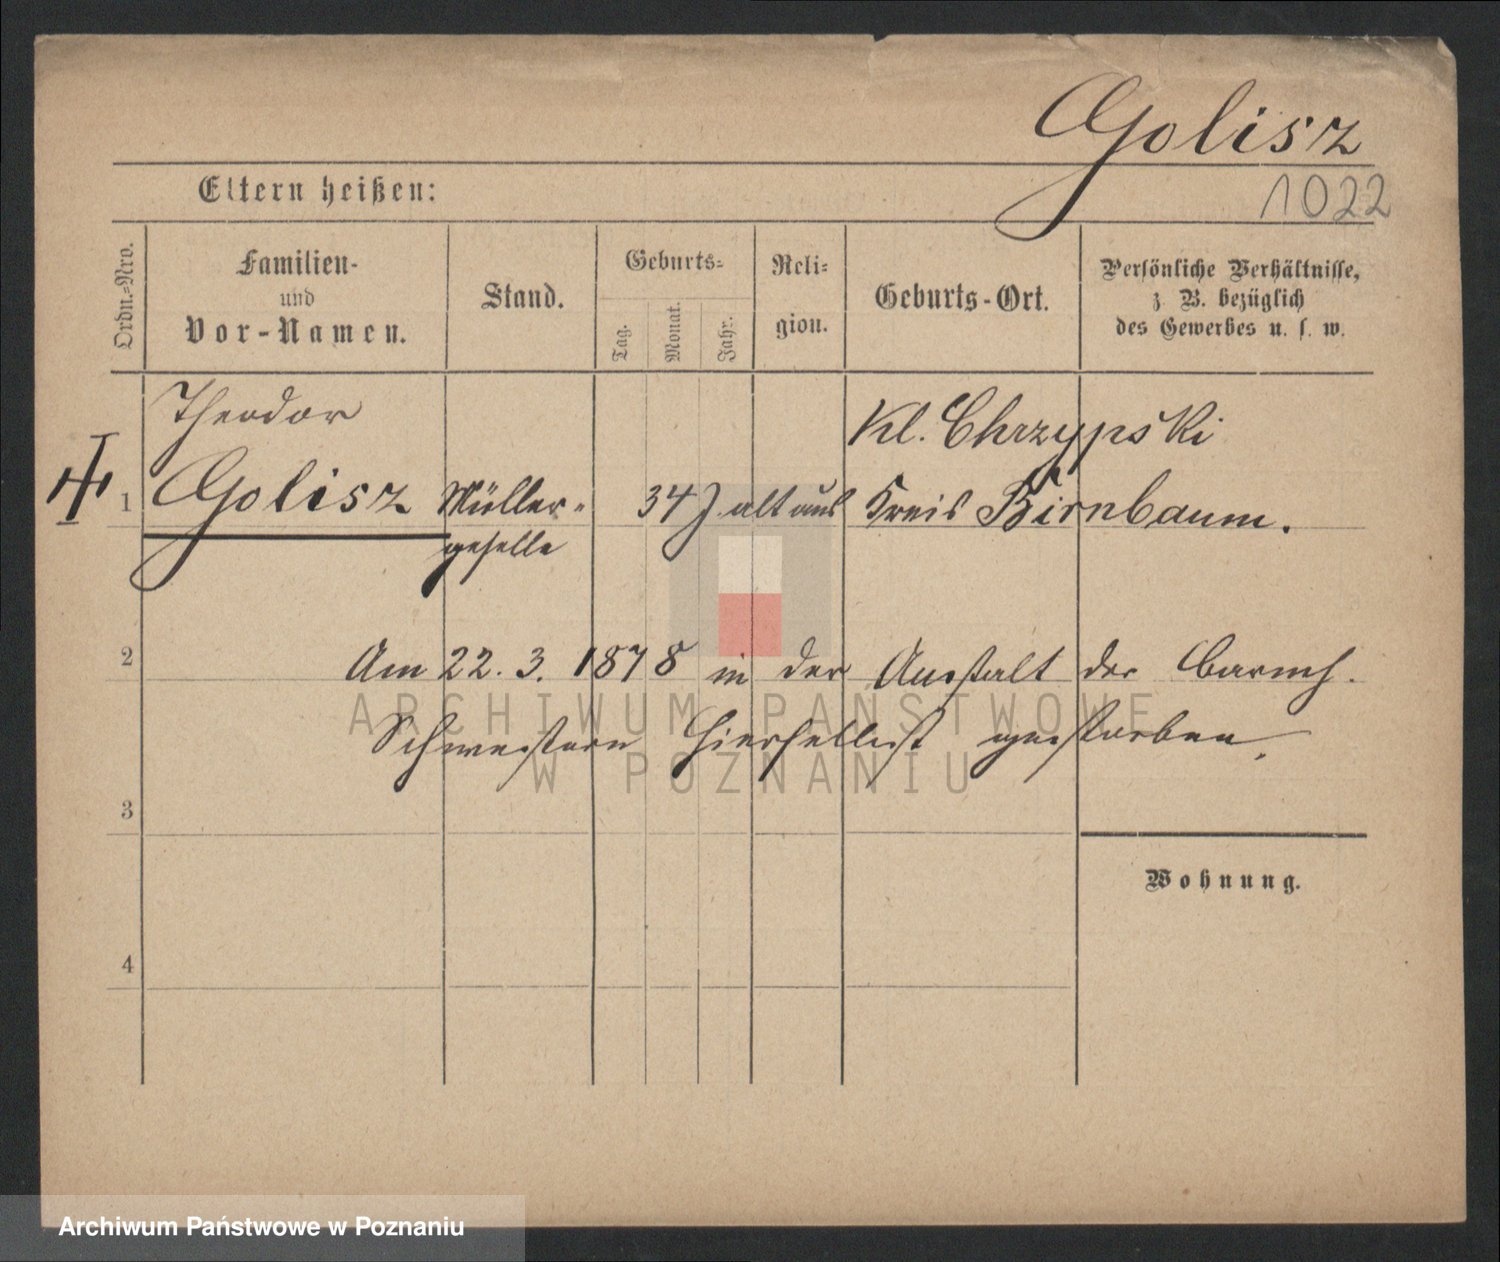 Golisz
Eltern heißen:
1022
Ordn.=Nro.
Familien-
und
Vor-Namen.
Stand.
Geburts=
Tag.
Monat.
Jahr.
Reli=
gion.
Geburts-Ort.
Persönliche Verhältnisse,
z. B. bezüglich
des Gewerbes u. s. w.
Theodor
Kl. Chrzypski
1 Golisz Müller= 34 J alt aus Kreis Birnbaum.
geselle
2
Am 22. 3. 1878 in der Anstalt der barmh.
Schwestern hierselbst gestorben.
3
Wohnung.
4
ARCHIWUM PAŃSTWOWE
W POZNANIU
Archiwum Państwowe w Poznaniu